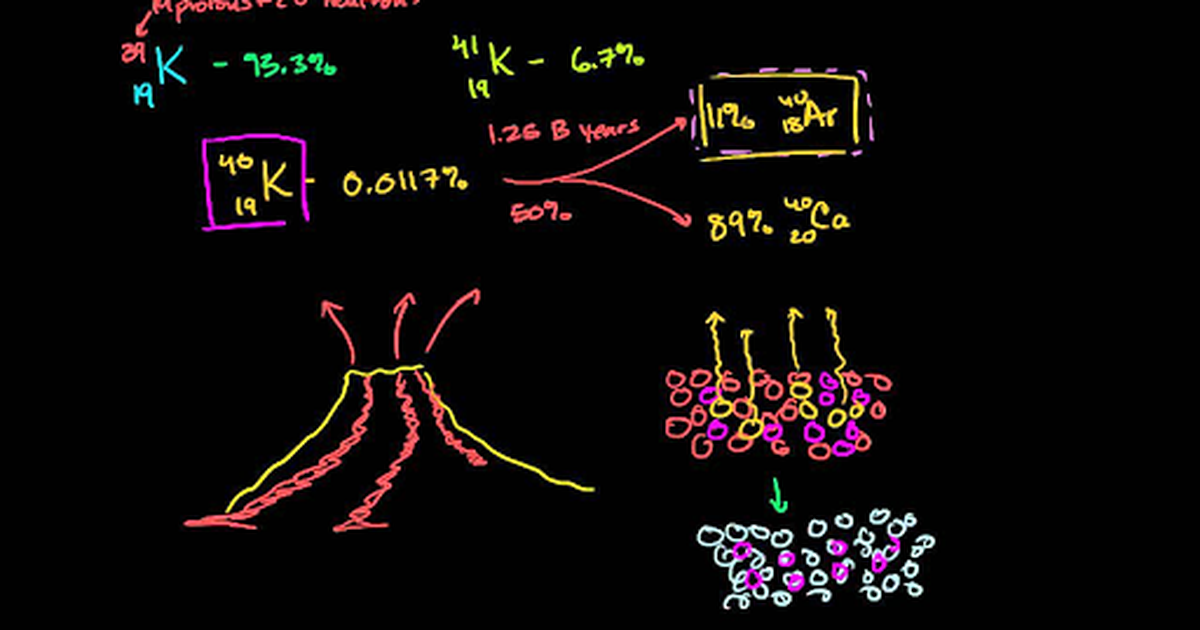 39
19 K - 93.3%
41
19 K - 6.7%
1.26 B years
11% 40
18 Ar
40
19 K - 0.0117%
50%
89% 40
20 Ca